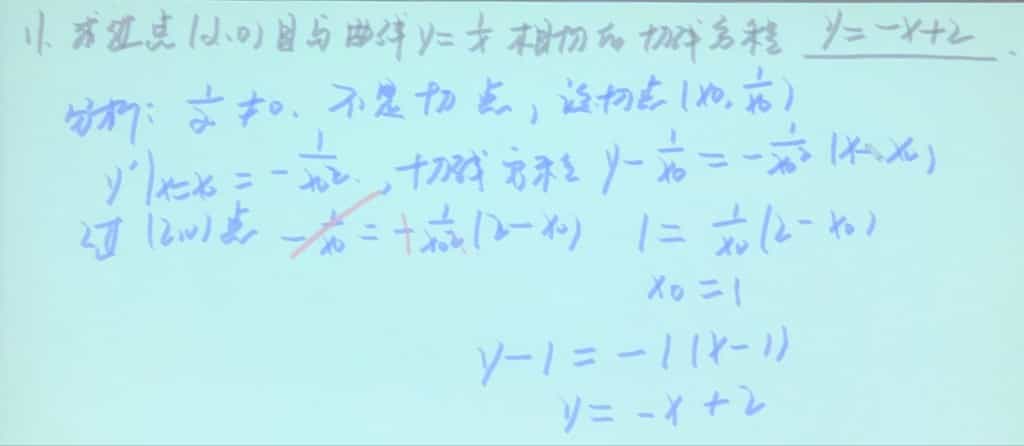 11. 求过点(2,0)且与曲线y=1/x相切的切线方程 y=-x+2.
分析: 1/2≠0. 不是切点, 设切点(x0, 1/x0)
y'|x=x0 = -1/x0². 切线方程 y-1/x0=-1/x0²(x-x0)
过(2,0)点 -1/x0=-1/x0²(2-x0) 1=1/x0(2-x0)
x0=1
y-1=-1(x-1)
y=-x+2